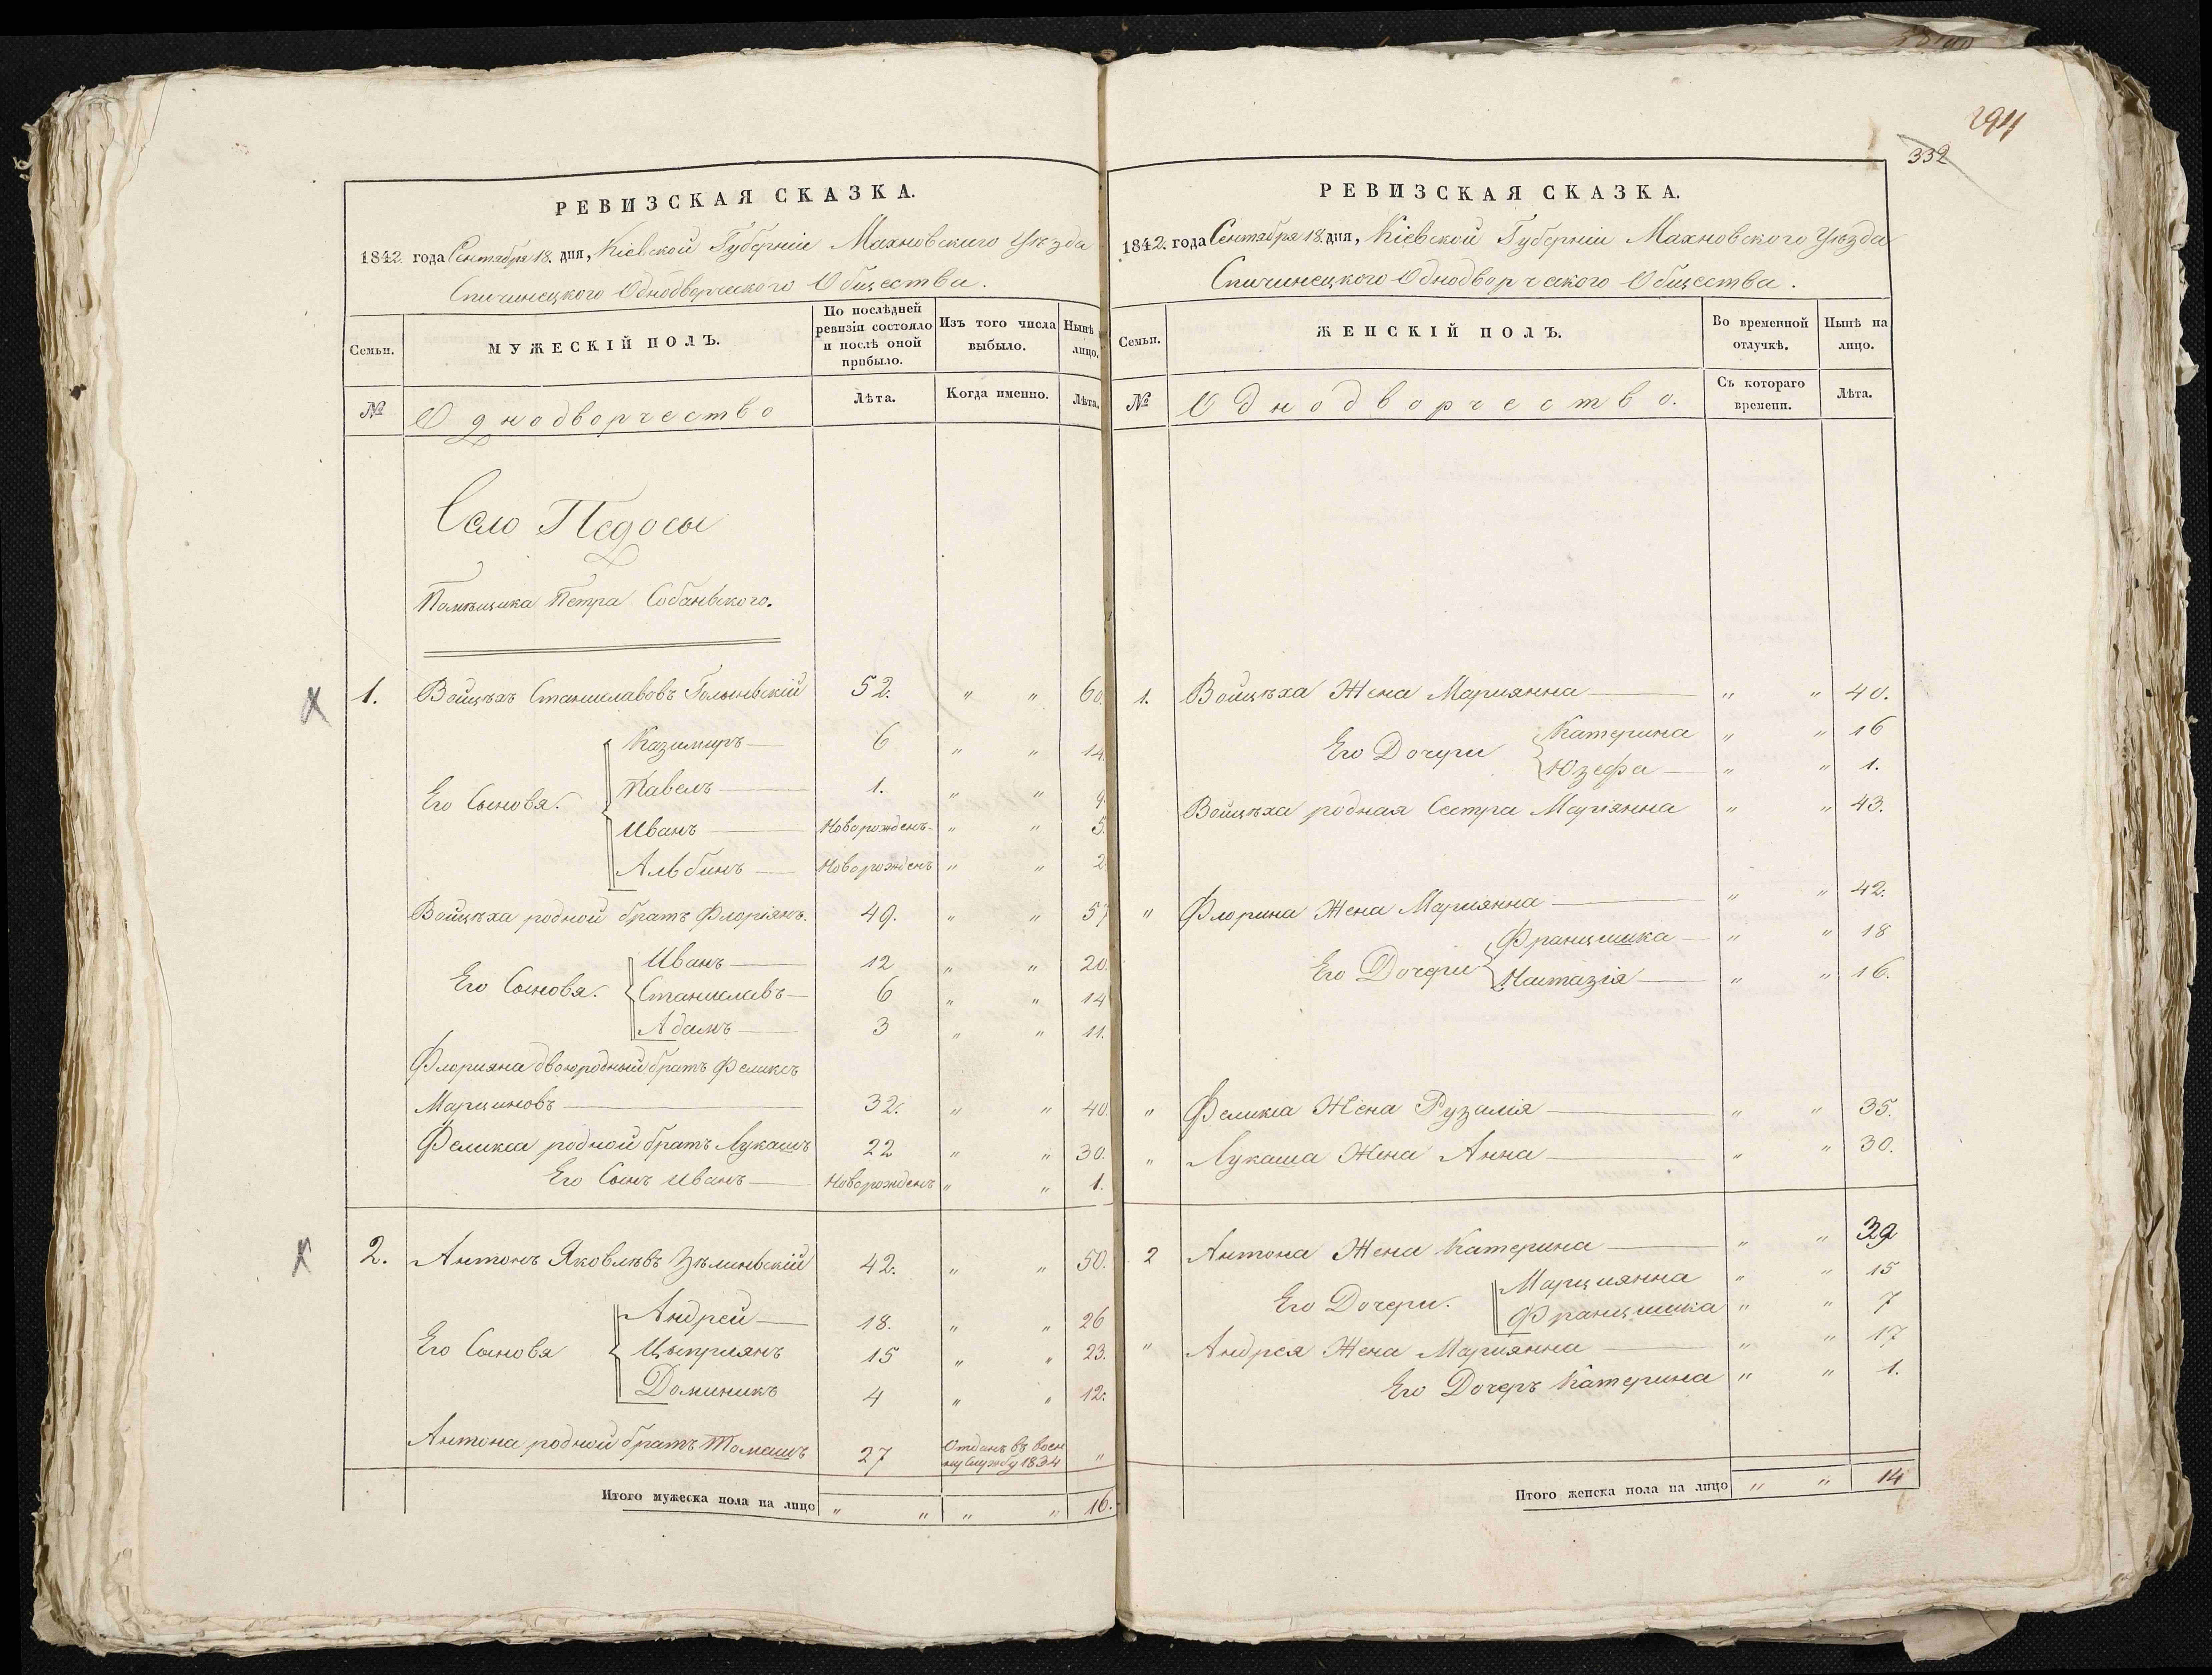 294
332
РЕВИЗСКАЯ СКАЗКА.
1842 года Сентября 18. дня, Кіевской Губерніи Махновскаго Уѣзда
Спичинецкого Однодворческого Общества.
Семьи.
МУЖЕСКІЙ ПОЛЪ.
По послѣдней ревизіи состояло и послѣ оной прибыло.
Изъ того числа выбыло.
Нынѣ лицо.
№
Однодворчество
Лѣта.
Когда именно.
Лѣта.
Село Педосы
Помѣщика Петра Собанвского.
1. Войцѣхъ Станиславовъ 52. " " 60.
Его Сыновя.
Казимиръ 6 " " 14.
Павелъ 1. " " 9.
Иванъ Новорожденъ " " 5.
Альбинъ Новорожденъ " " 2
Войцѣха родной братъ Флоріянъ. 49. " " 57
Его Сыновя.
Иванъ 12 " " 20.
Станиславъ 6 " " 14
Адамъ 3 " " 11.
Флорияна двоюродный братъ Феликсъ
Марциновъ 32. " " 40.
Феликса родной братъ Лукашъ 22 " " 30.
Его Сынъ Иванъ Новорожденъ " " 1.
2. Антонъ Яковлѣвъ Зѣлинвскій 42. " " 50.
Его Сыновя
Андрей 18. " " 26
Цыприянъ 15 " " 23.
Доминикъ 4 " " 12.
Антона родной братъ Томашъ 27 Отданъ въ воен
ную Службу 1834 "
Итого мужеска пола на лицо " " " " 16.
РЕВИЗСКАЯ СКАЗКА.
1842. года Сентября 18. дня, Кіевской Губерніи Махновского Уѣзда
Спичинецкого Однодворческого Общества.
Семьи.
ЖЕНСКІЙ ПОЛЪ.
Во временной отлучкѣ.
Нынѣ на лицо.
№
Однодворчество.
Съ котораго времени.
Лѣта.
1. Войцѣха Жена Мариянна " " 40.
Его Дочери
Катерина " " 16
Юзефа " " 1.
Войцѣха родная Сестра Маріянна " " 43.
" Флорина Жена Мариянна " " 42.
Его Дочери
Францишка " " 18
Настазія " " 16.
" Феликса Жена Рузалія " " 35.
" Лукаша Жена Анна " " 30.
2 Антона Жена Катерина " " 39
Его Дочери.
Марциянна " " 15
Францишка " " 7
" Андрея Жена Мариянна " " 17
Его Дочеръ Катерина " " 1.
Итого женска пола на лицо " " 14